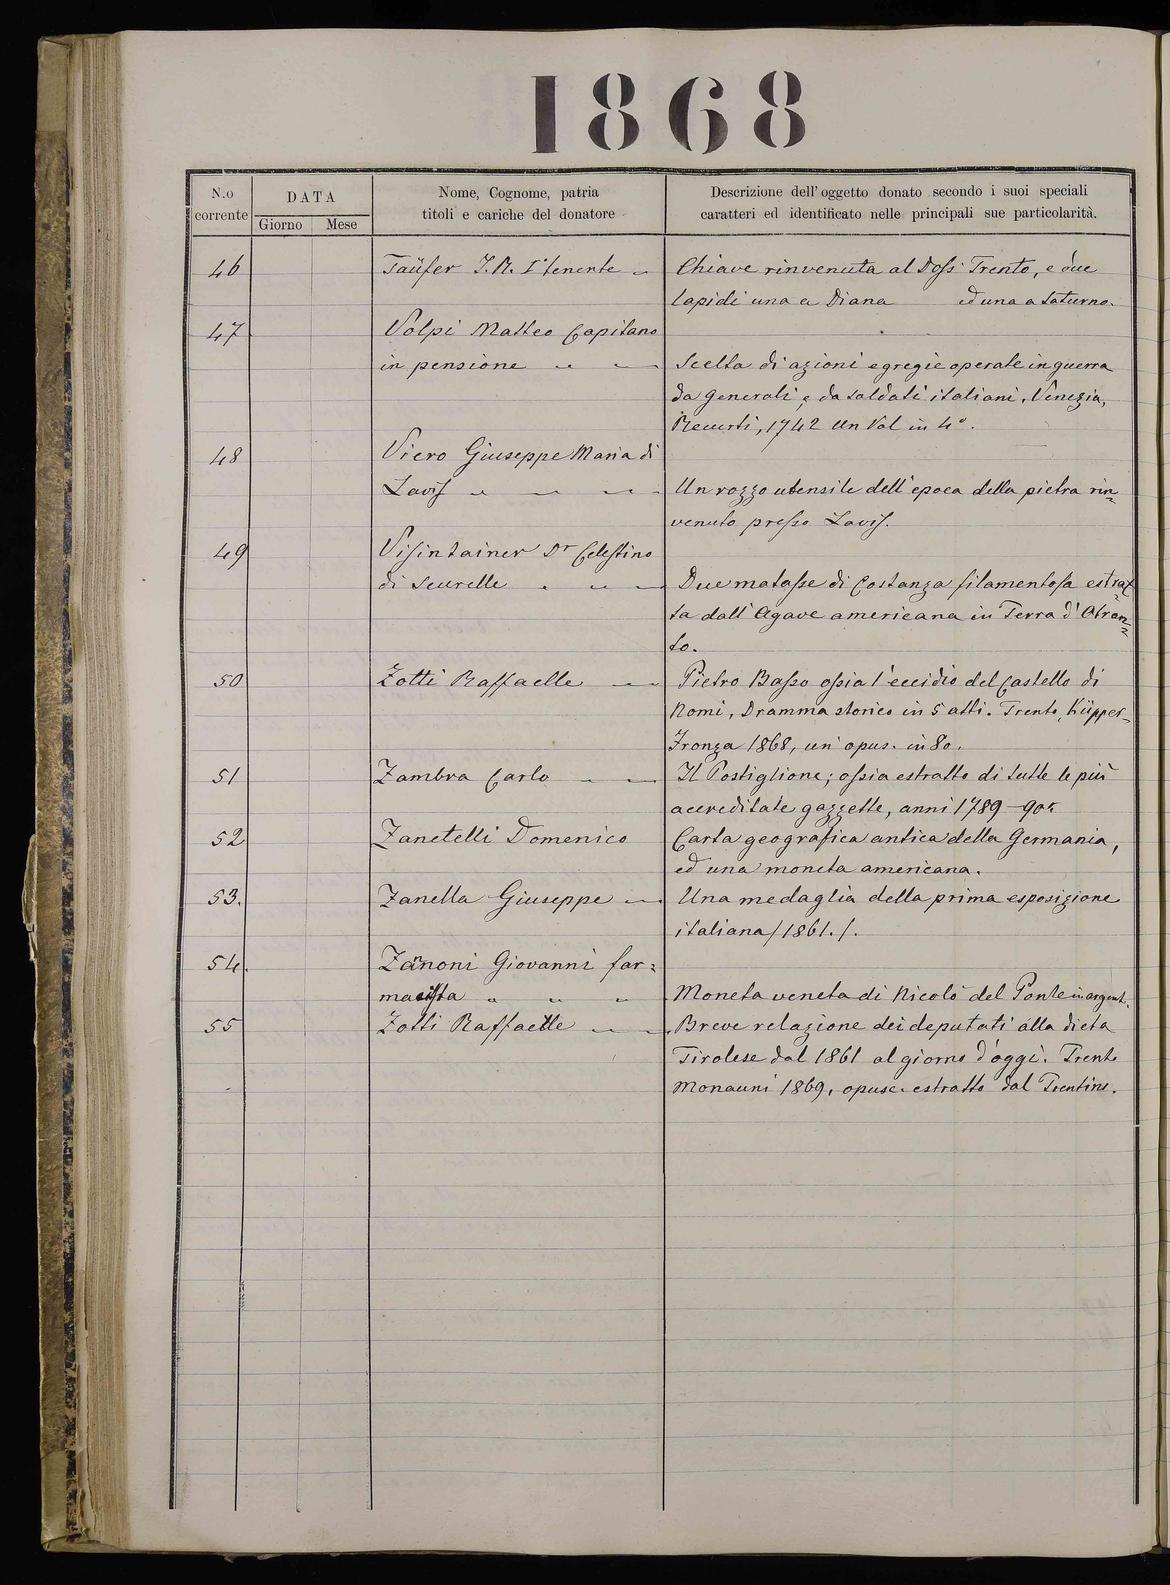 1868
N.o corrente
DATA
Giorno Mese
Nome, Cognome, patria
titoli e cariche del donatore
Descrizione dell'oggetto donato secondo i suoi speciali
caratteri ed identificato nelle principali sue particolarità.
46 Taüfer I. R. I° tenente „ Chiave rinvenuta al Doss Trento, e due
lapidi una a Diana ed una a Saturno.
47 Volpi Matteo Capitano
in pensione „ „ Scelta di azioni egregie operate in guerra
da generali, e da soldati italiani. Venezia,
Recurti, 1742 Un Vol in 4°.
48 Viero Giuseppe Maria di
Lavis „ „ „ Un rozzo utensile dell'epoca della pietra rin=
venuto presso Lavis.
49 Visintainer Dr Celestino
di Scurelle „ „ „ Due matasse di Costanza filamentosa estrat=
ta dall'Agave americana in Terra d'Otran=
to.
50 Zotti Raffaelle „ „ Pietro Basso ossia l'eccidio del Castello di
Nomi, Dramma storico in 5 atti. Trento, Küpper=
Fronza 1868, un opus. in 8o.
51 Zambra Carlo „ „ Il Postiglione; ossia estratto di tutte le più
accreditate gazzette, anni 1789-90
52 Zanetelli Domenico Carta geografica antica della Germania,
ed una moneta americana.
53. Zanella Giuseppe „ Una medaglia della prima esposizione
italiana /1861./.
54. Zanoni Giovanni far=
macista „ „ „ Moneta veneta di Nicolò del Ponte in argent.
55 Zotti Raffaelle „ „ Breve relazione dei deputati alla dieta
Tirolese dal 1861 al giorno d'oggi. Trento
Monauni 1869, opusc. estratto dal Trentino.